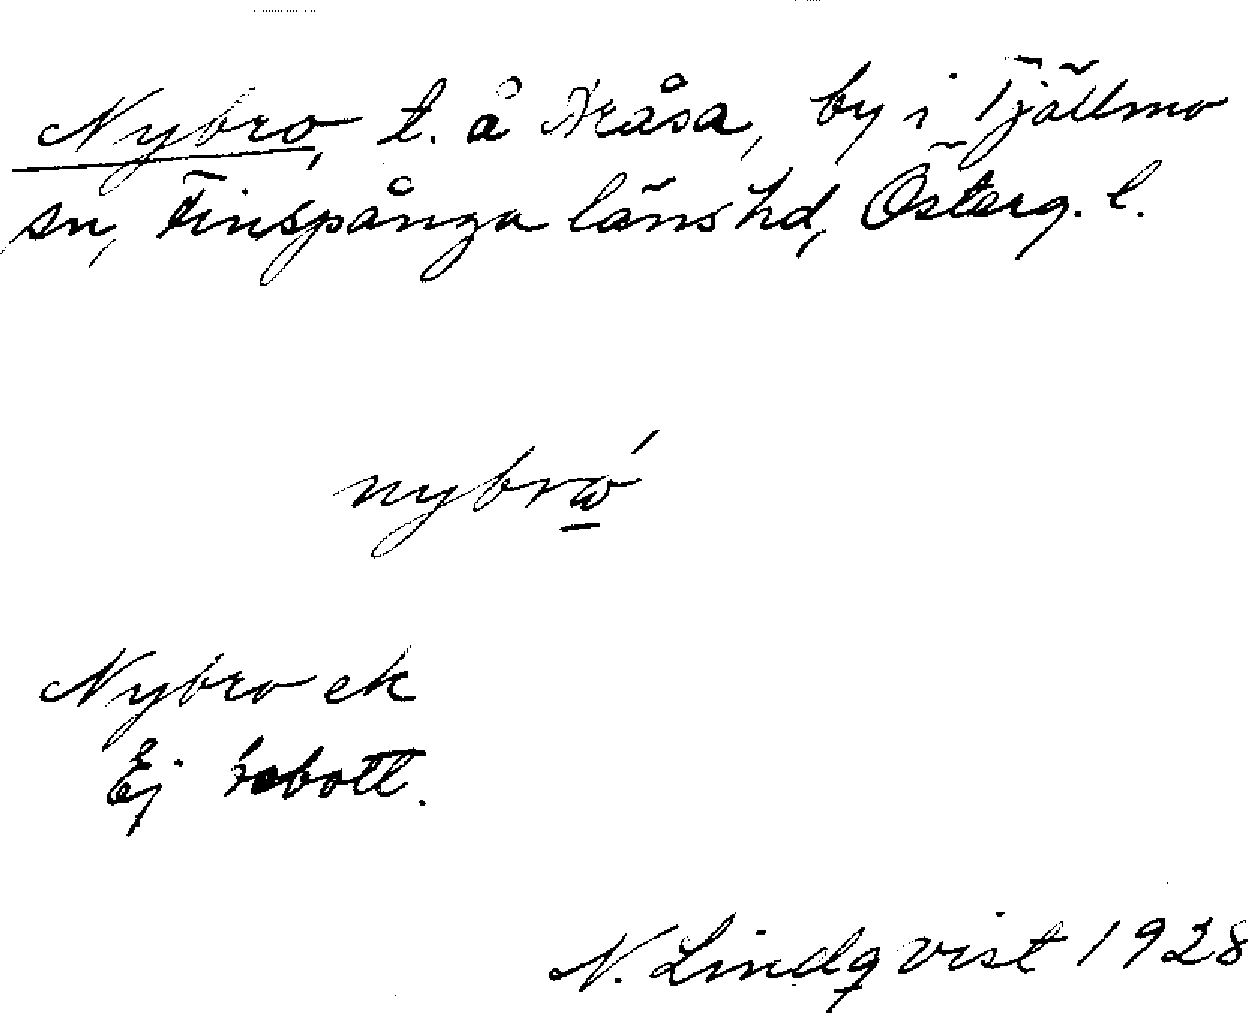 Nybro, t. å Kråsa, by i Tjällmo
sn, Finspånga läns hd, Österg. l.
nybrώ
Nybro ek
Ej bebott.
N. Lindqvist 1928